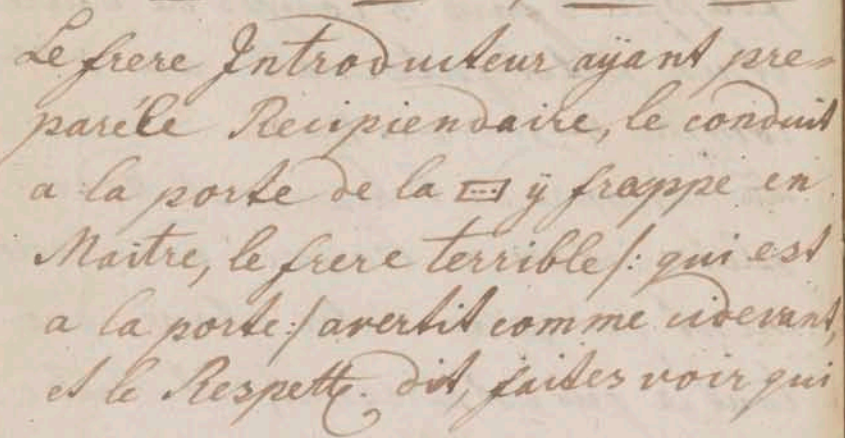 Le frere Introducteur aÿant pre-
paré le Recipiendaire, le conduit
a la porte de la ÿ frappe en
Maitre, le frere terrible /: qui est
a la porte :/ avertit comme cidevant,
et le Respett. dit, faites voir qui